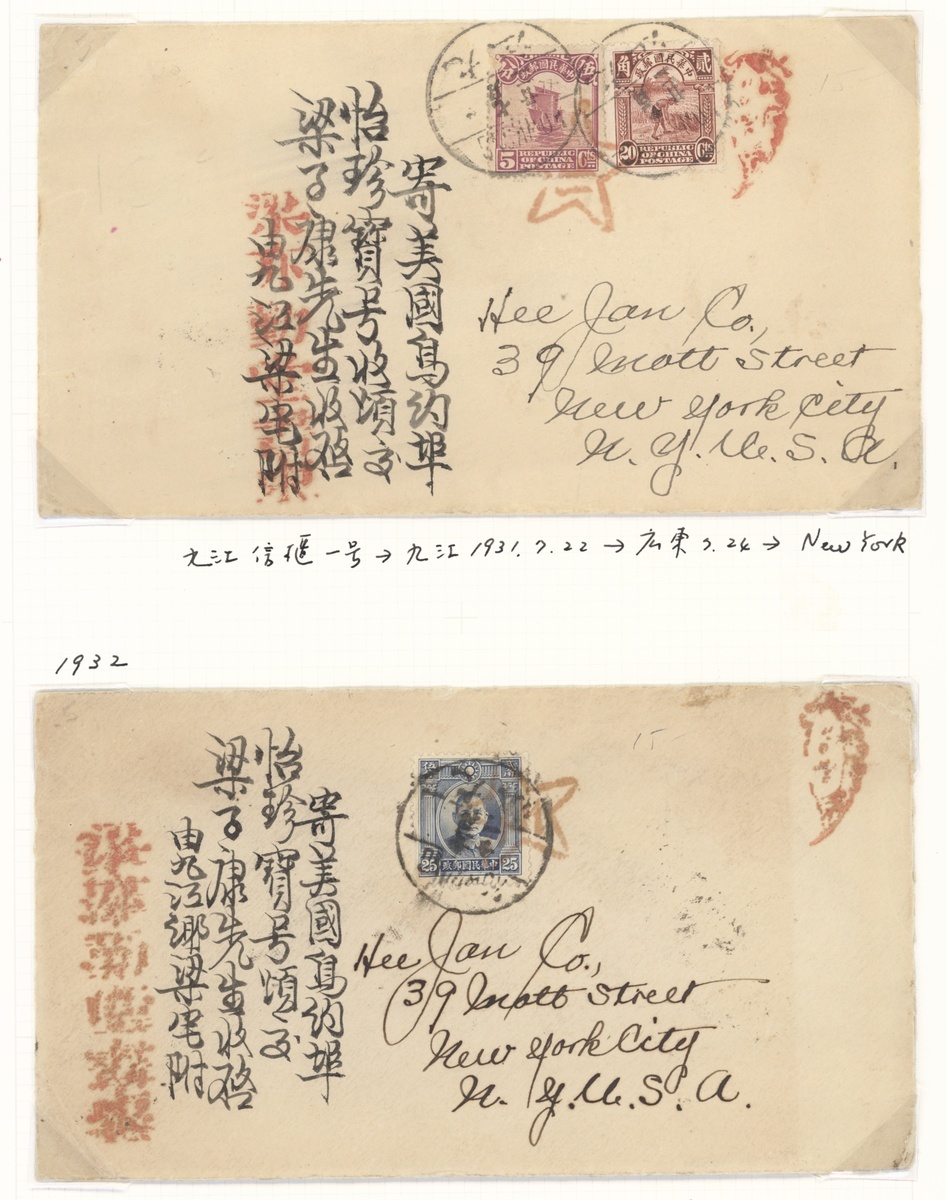 寄美國鳥約埠
怡珍寶号收煩交
梁子康先生收啓
由九江梁宅附
伍
中華民國郵政
5 Cts
REPUBLIC
OF CHINA
POSTAGE
角
貳
中華民國郵政
20 Cts
REPUBLIC
OF CHINA
POSTAGE
Hee Jan Co.,
39 Mott Street
New York City
N. Y. U. S. A.
九江 信櫃 一号 → 九江 1931.7.22 → 広東 7.24 → New York
1932
寄美國鳥約埠
怡珍寶号煩交
梁子康先生收啓
由九江鄉梁宅附
25 中華民國郵政 25
15
Hee Jan Co.,
39 Mott Street
New York City
N. Y. U. S. A.